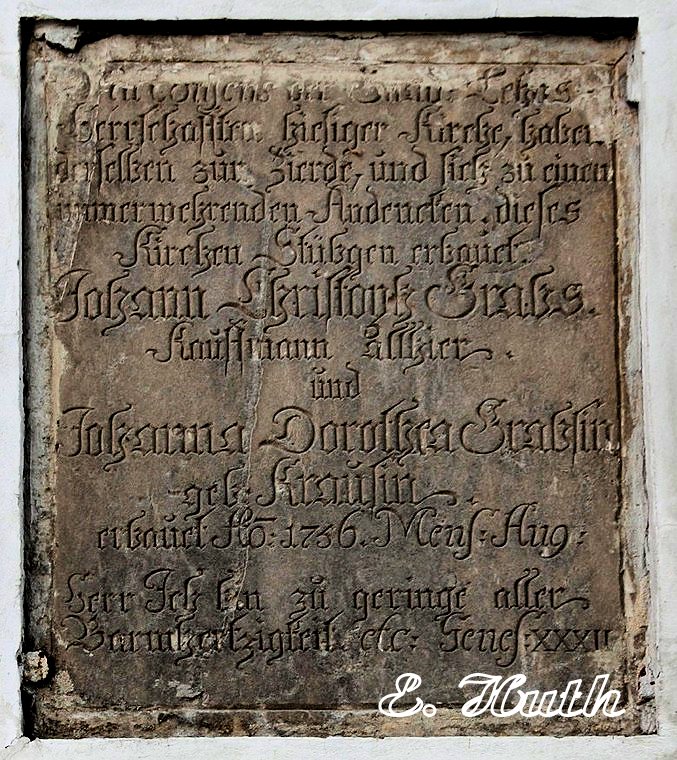 Lehns
Herrschafften hiesiger Kirche, haben
derselben zur Zierde, und sich zu einem
immerwehrenden Andencken, dieses
Kirchen Stübgen erbauet.
Johann Christoph Grabs.
Kauffmann allhier.
und
Johanna Dorothea Grabsin
geb: Krausin.
erbauet Aō: 1756. Mens: Aug:
Herr Ich bin zu geringe aller
Barmhertzigkeit etc: Genes: XXXII
E. Huth